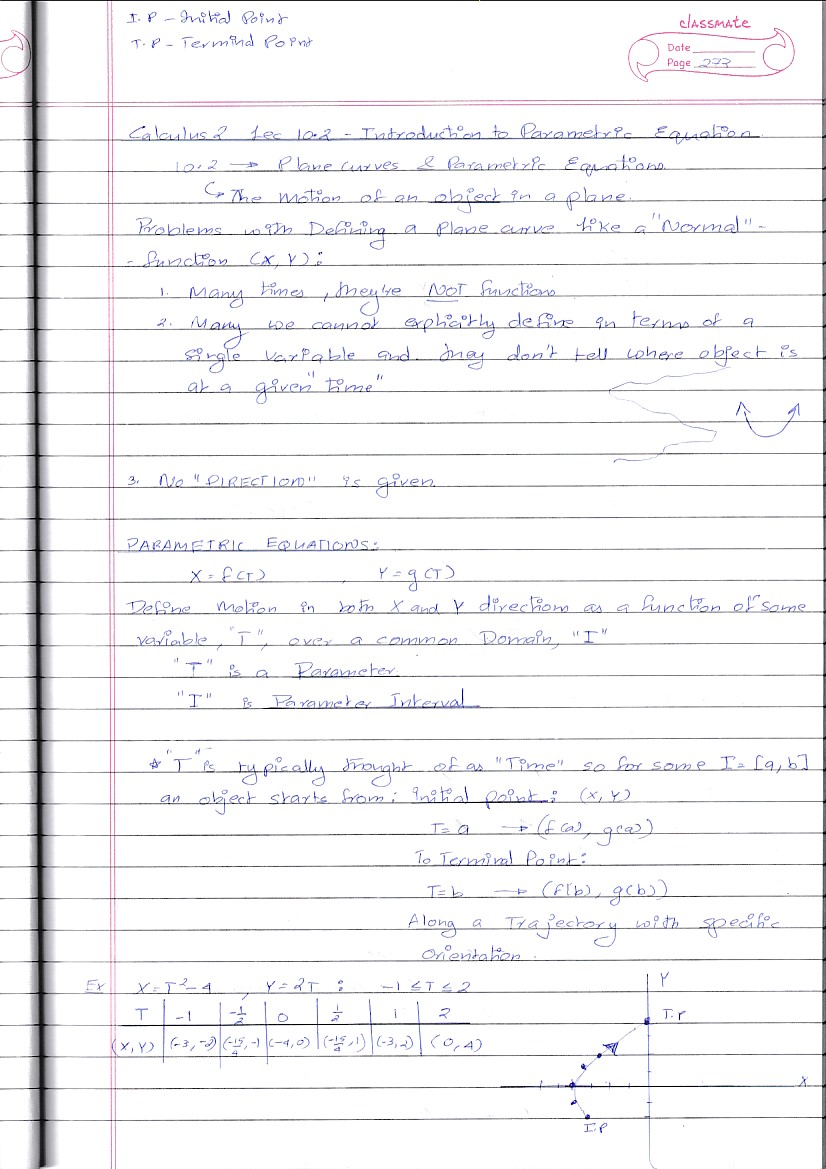 I.P - Initial Point
T.P - Terminal Point
classmate
Date
Page 277
Calculus 2 Lec 10.2 - Introduction to Parametric Equation.
10.2 → Plane curves & Parametric Equations.
↳ The Motion of an object in a plane.
Problems with Defining a Plane curve like a "Normal" -
- function (X, Y) :
1. Many times, they're NOT functions
2. Many we cannot explicitly define in terms of a
single variable and they don't tell where object is
at a given "time"
3. No "DIRECTION" is given.
PARAMETRIC EQUATIONS:
X = f(T) , Y = g(T)
Define Motion in both X and Y directions as a function of some
variable, "T", over a common Domain, "I"
"T" is a Parameter.
"I" is Parameter Interval
* "T" is typically thought of as "Time" so for some I = [a, b]
an object starts from: Initial point: (X, Y)
T = a → (f(a), g(a))
To Terminal Point:
T = b → (f(b), g(b))
Along a Trajectory with specific
Orientation.
Ex X = T² - 4 , Y = 2T : -1 ≤ T ≤ 2
T | -1 | -1/2 | 0 | 1/2 | 1 | 2
(X, Y) | (-3, -2) | (-15/4, -1 | (-4, 0) | (-15/4, 1) | (-3, 2) | (0, 4)
Y
T.P
X
I.P